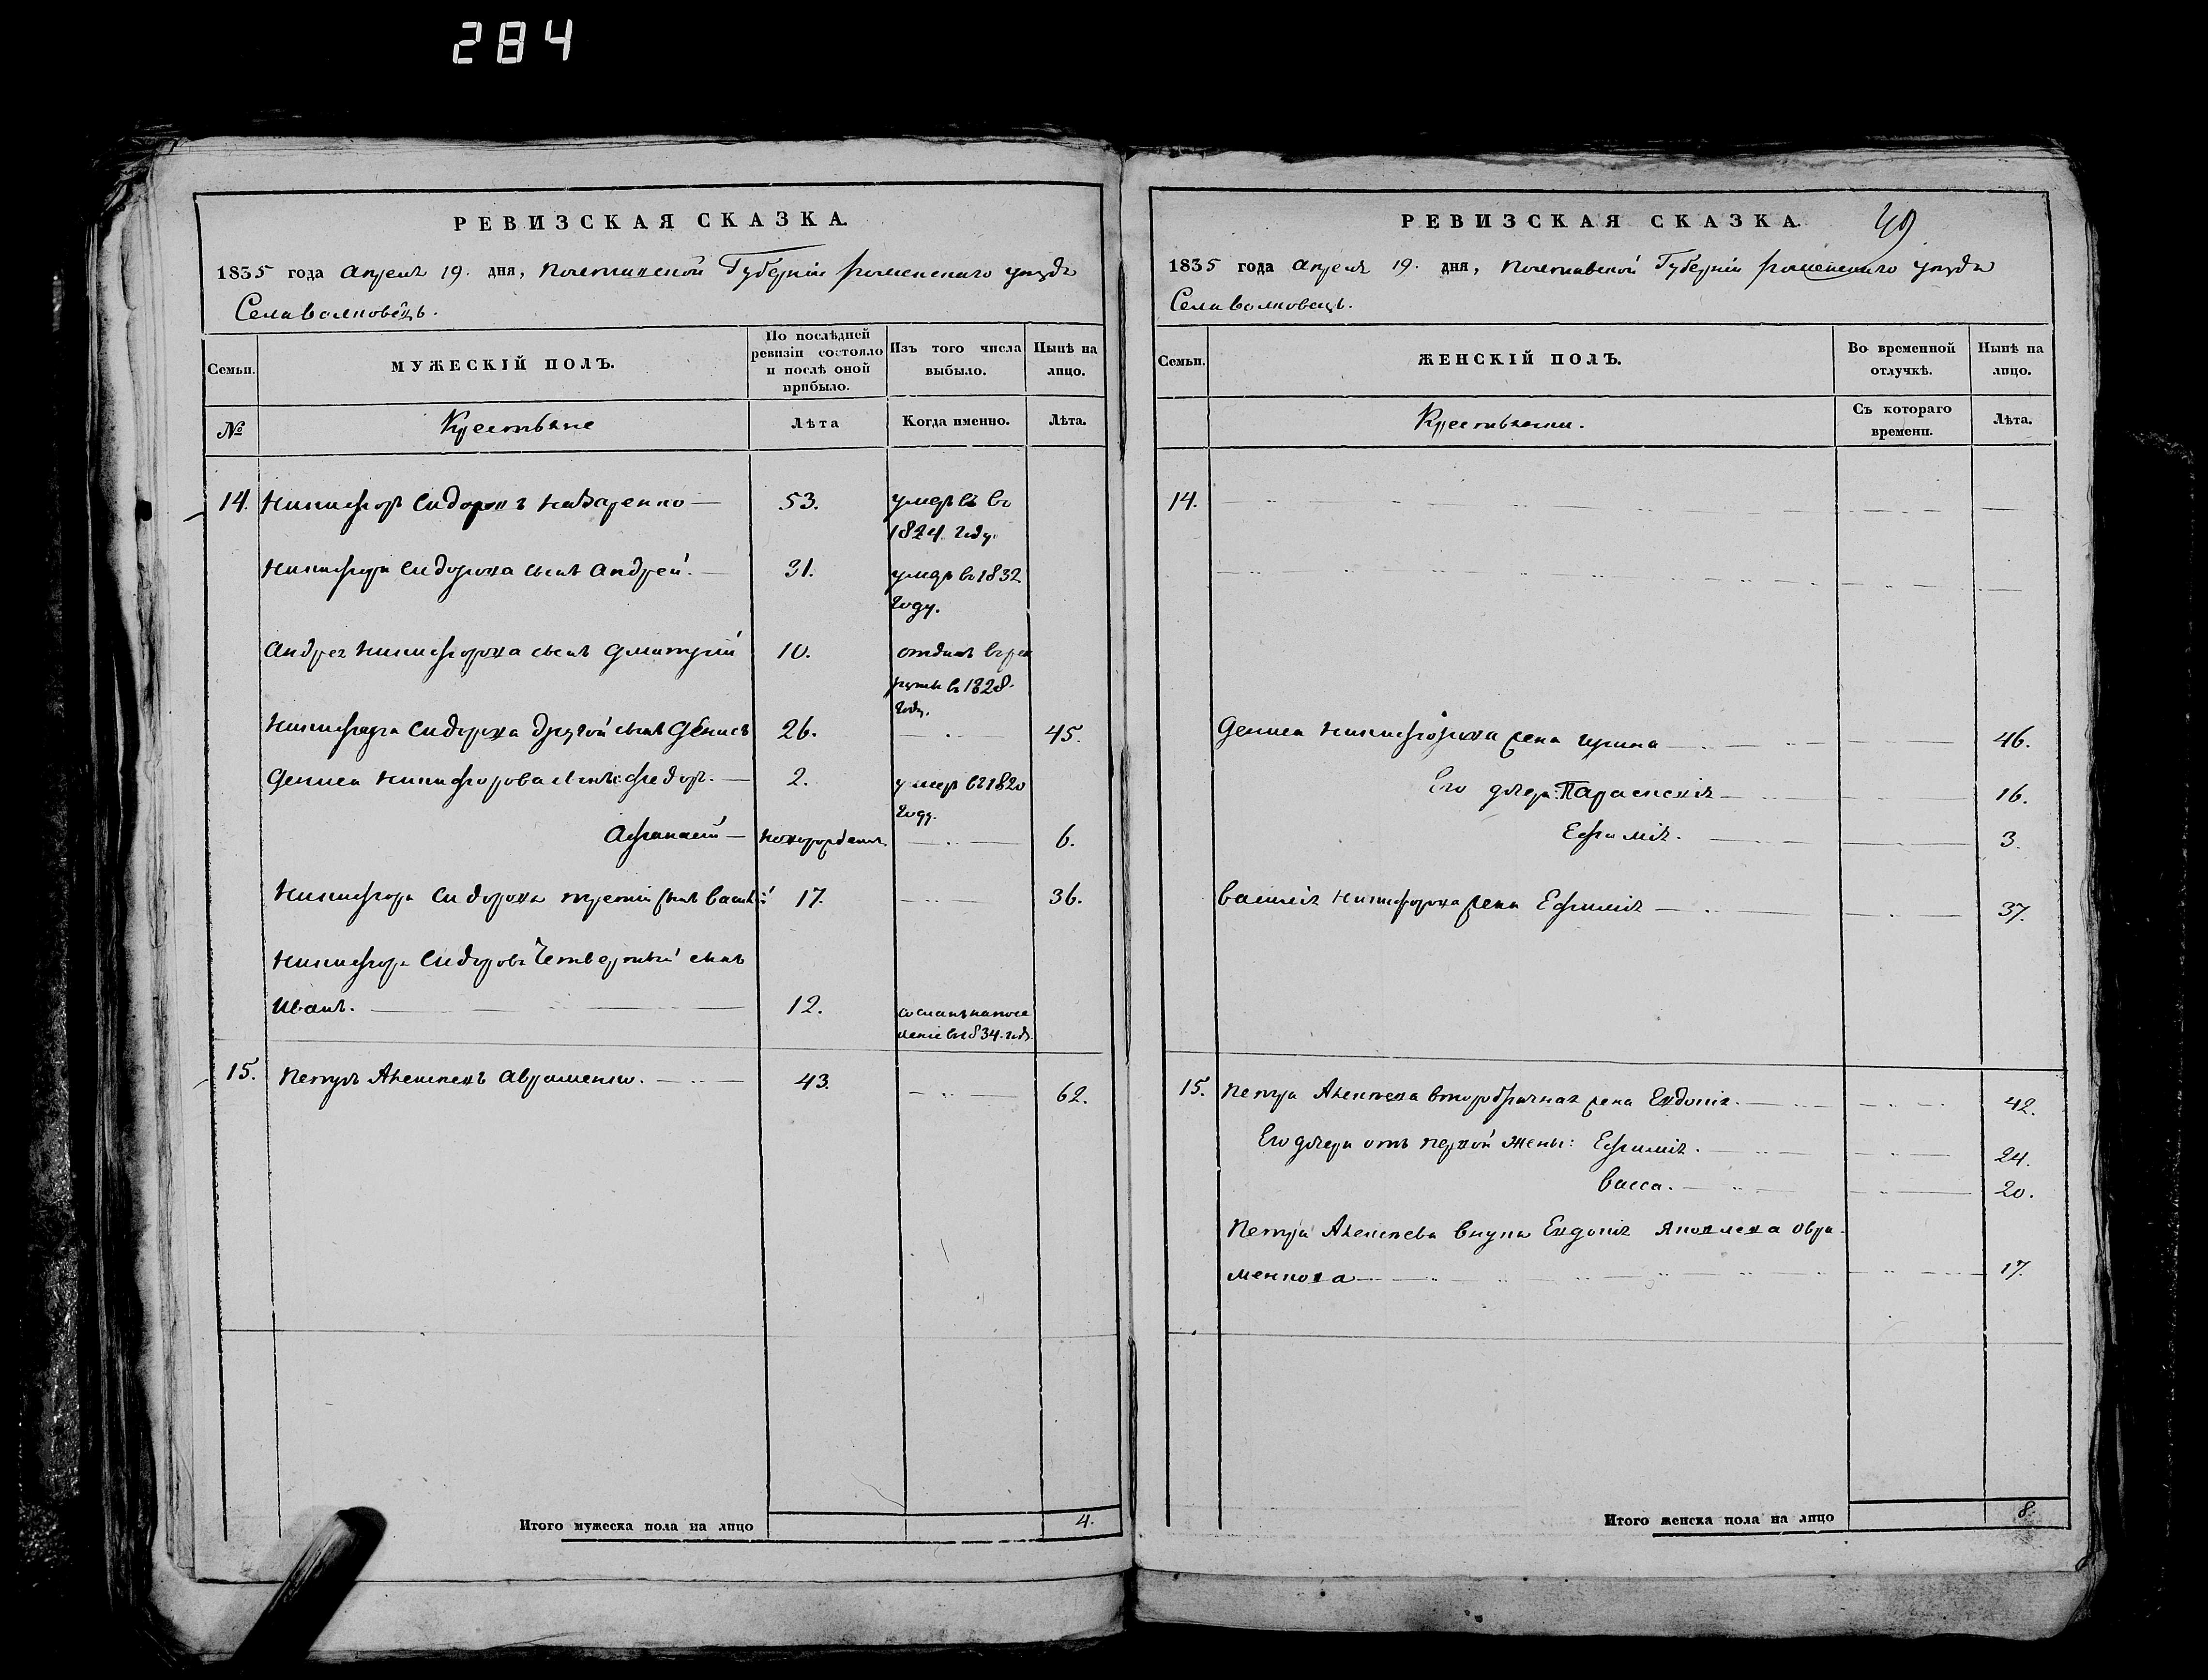 284
РЕВИЗСКАЯ СКАЗКА.
1835 года Апреля 19. дня, Полтавской Губернии роменскаго уезда
Села Волковецъ.
Семьи.
МУЖЕСКІЙ ПОЛЪ.
По послѣдней ревизіи состояло и послѣ оной прибыло.
Изъ того числа выбыло.
Нынѣ на лицо.
№
Крестьяне
Лѣта
Когда именно.
Лѣта.
14. Никифоръ Сидоровъ Назаренко — 53. умеръ въ
1824 году.
Никифора Сидорова сынъ Андрей. — 31. умеръ в 1832
году.
Андрея Никифорова сынъ Дмитрий 10. отданъ в рек
руты в 1828.
году.
Никифора Сидорова другой сынъ Денисъ 26. — 45.
Дениса Никифорова сынъ: Федоръ. — 2. умеръ в 1820
году.
Афанасий — новорожденъ — 6.
Никифора Сидорова третий сынъ Василий 17. — 36.
Никифора Сидорова Четвертый сынъ
Иванъ. — 12. сосланъ на посе
ление в 1834. году.
15. Петръ Алексеевъ Авраменко. — 43. — 62.
Итого мужеска пола на лицо 4.
РЕВИЗСКАЯ СКАЗКА. 49
1835 года Апреля 19. дня, Полтавской Губернии роменскаго уезда
Села Волковецъ.
Семьи.
ЖЕНСКІЙ ПОЛЪ.
Во временной отлучкѣ.
Нынѣ на лицо.
Крестьянки.
Съ котораго времени.
Лѣта.
14. —
Дениса Никифорова жена Ирина — 46.
Его дочери: Параскевия — 16.
Ефимия. — 3.
Василия Никифорова жена Ефимия — 37.
15. Петра Алексеева второбрачная жена Евдокия. — 42.
Его дочери отъ первой жены: Ефимия. — 24.
Васса. — 20.
Петра Алексеева внука Евдокия Яковлева Овра-
менкова — 17.
Итого женска пола на лицо 8.